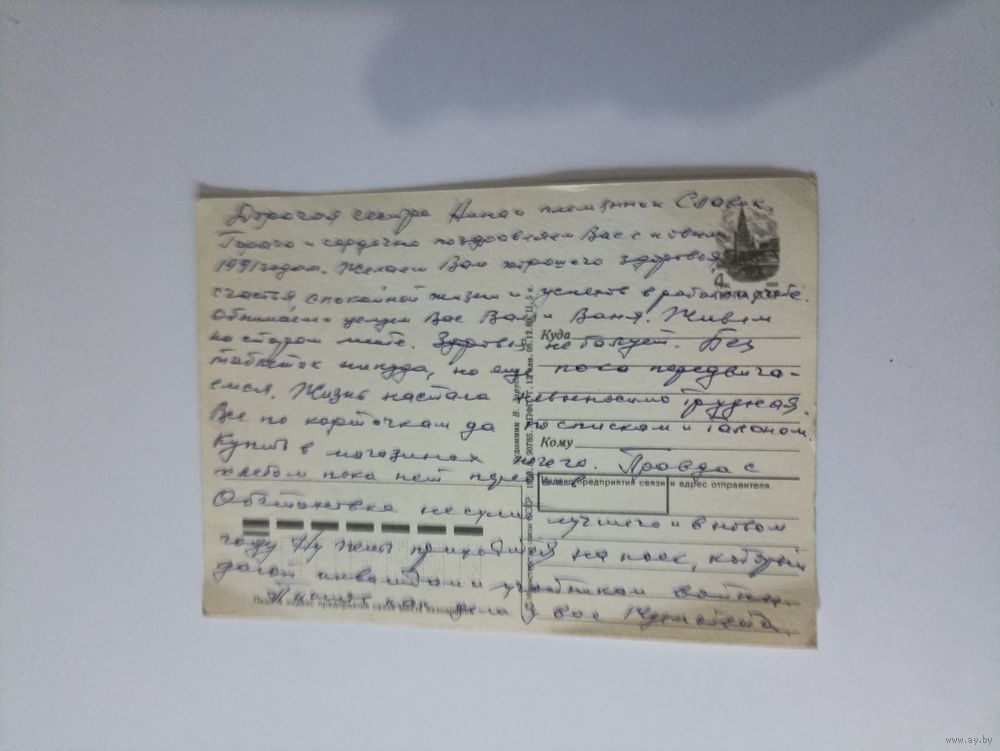 Дорогая сестра Нина и племянник Славик.
Горячо и сердечно поздравляем Вас с новым
1991 годом. Желаем Вам хорошего здоровья,
счастья спокойной жизни и успехов в работе и учебе.
Обнимаем и целуем Вас Валя и Ваня. Живем
на старом месте. Здоровье не балует. Без
таблеток никуда, но еще пока передвига-
емся. Жизнь настала невыносимо трудная.
Все по карточкам да по спискам и талонам.
Купить в магазинах нечего. Правда с
хлебом пока нет
Обстановка не сулит лучшего и в новом
году. Ну жить приходится на паек, который
дают инвалидам и участникам войны.
Пишите как дела у вас
Куда
Кому
Индекс предприятия связи и адрес отправителя
Пишите индекс предприятия связи места назначения
Художник В.
www.ay.by